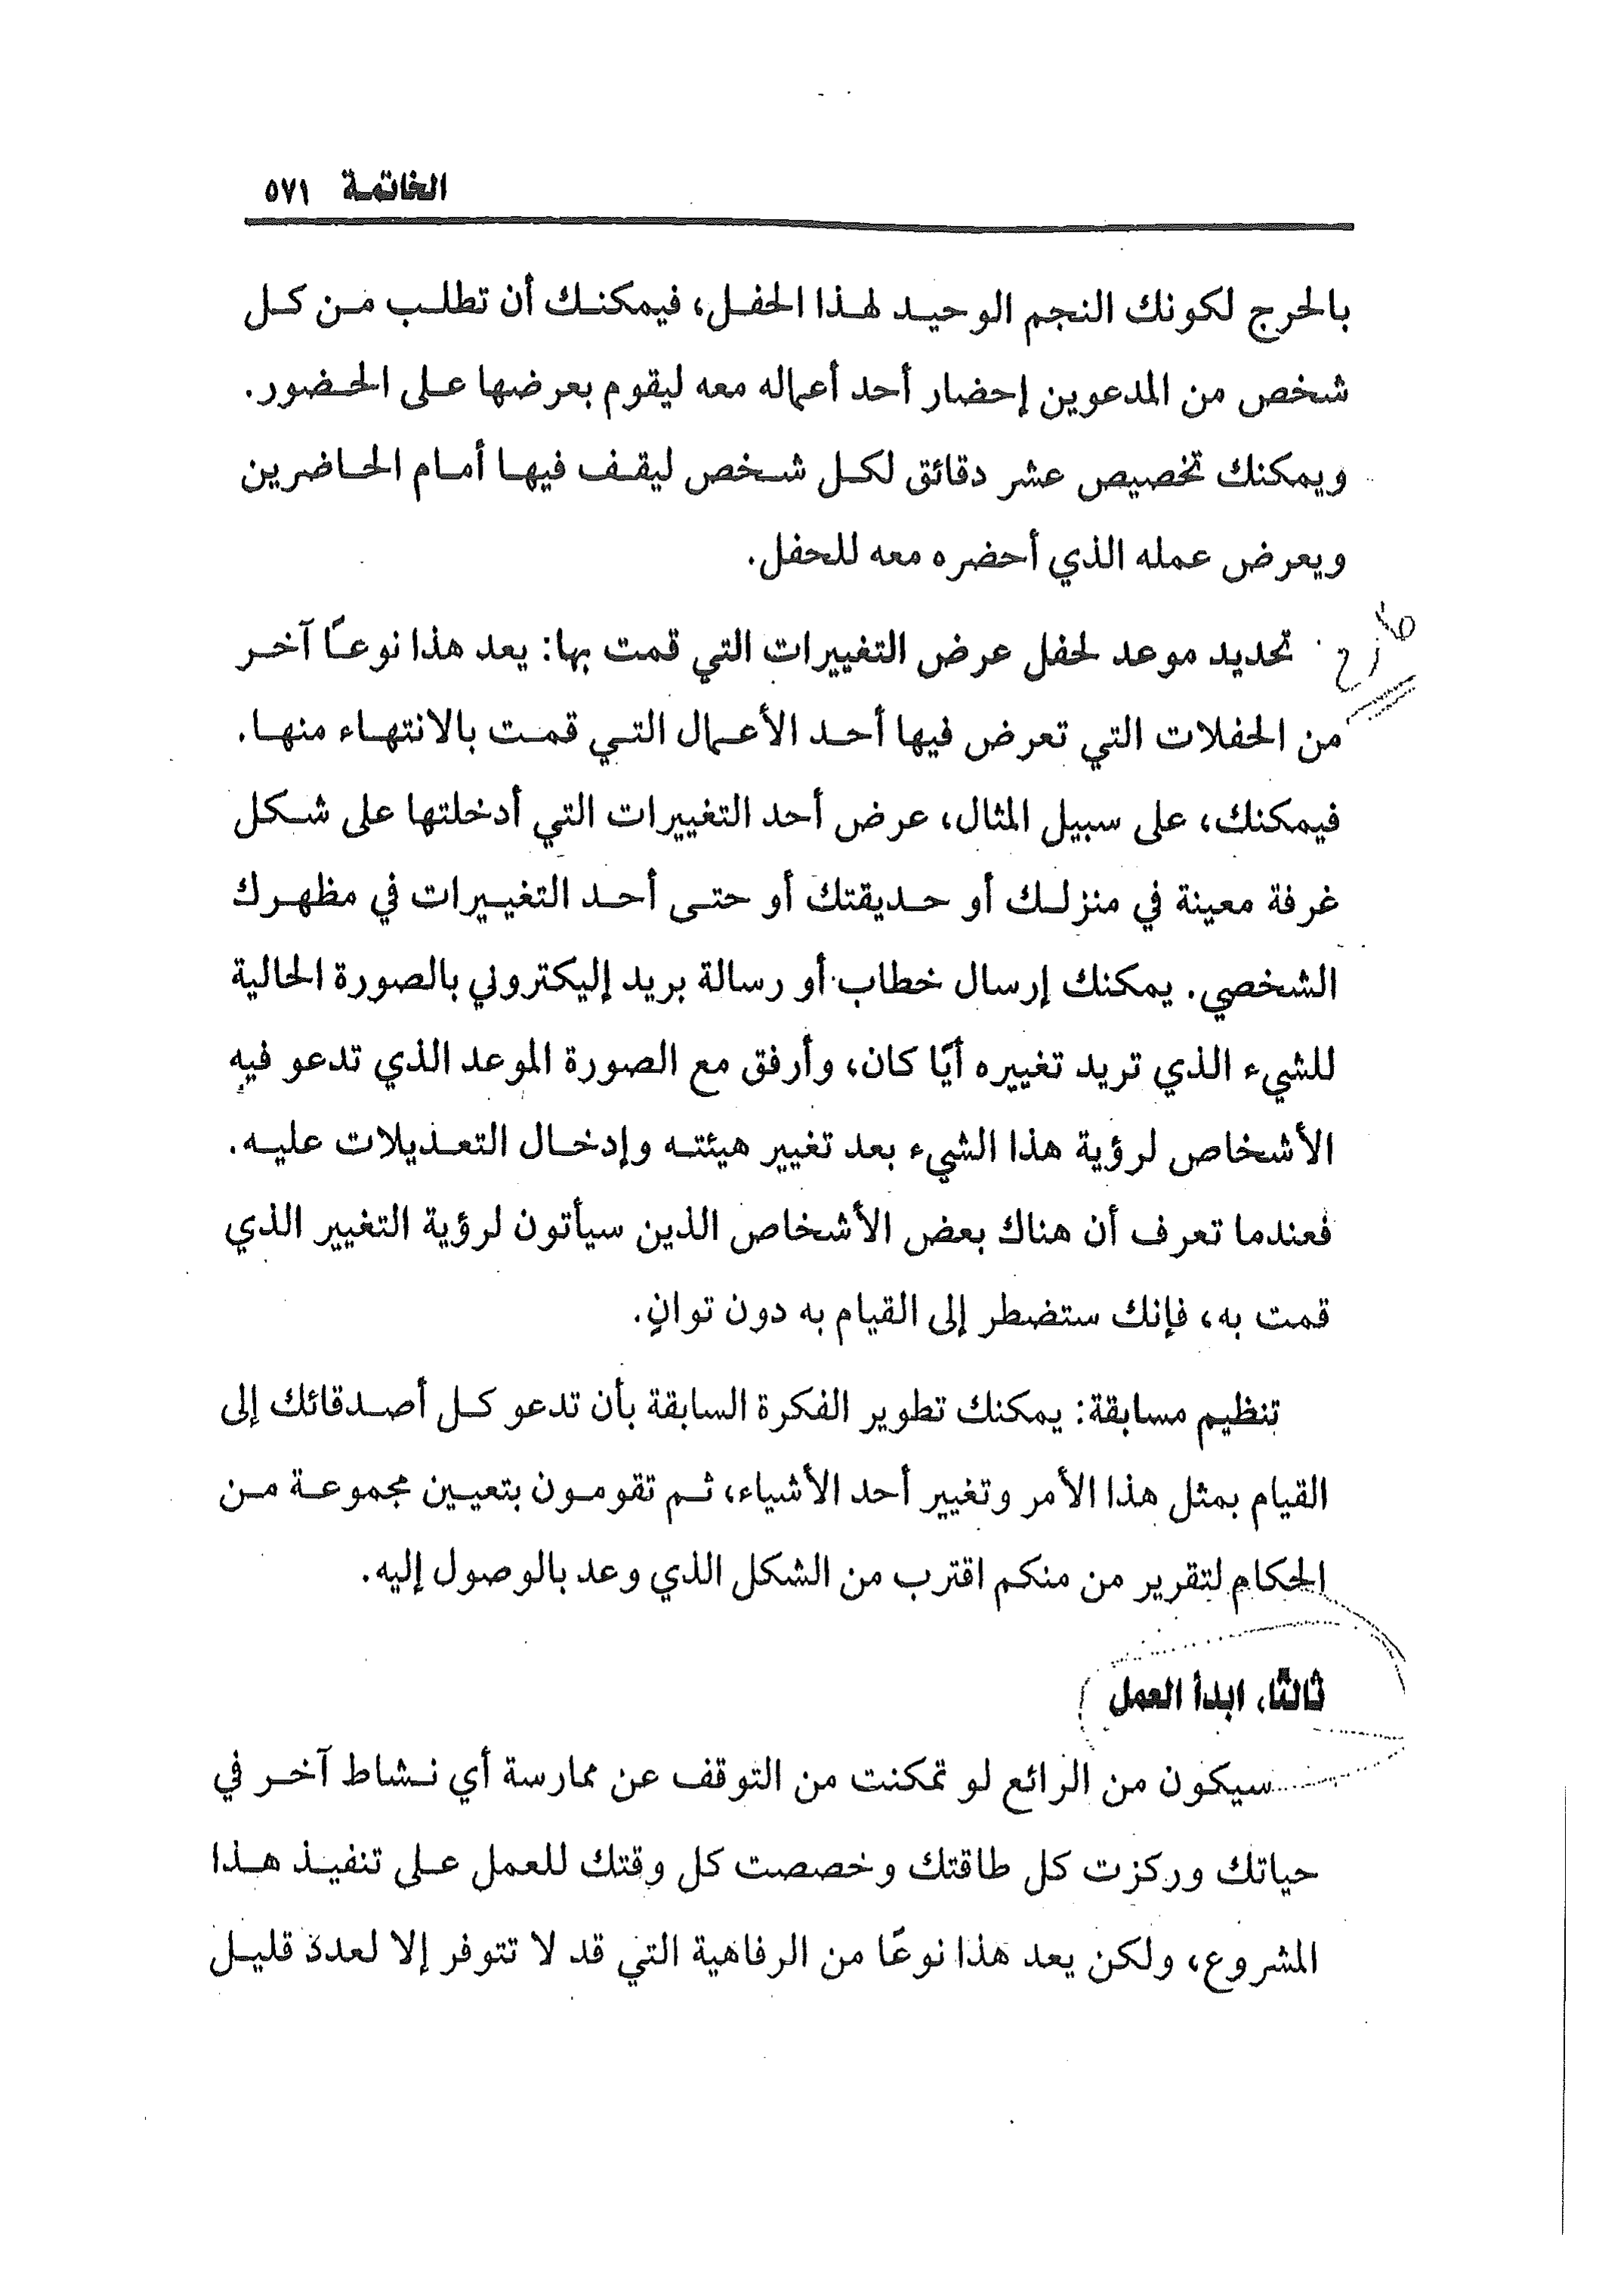 الخاتمة ٥٧١
بالحرج لكونك النجم الوحيد لهذا الحفل، فيمكنك أن تطلب من كل
شخص من المدعوين إحضار أحد أعماله معه ليقوم بعرضها على الحضور.
ويمكنك تخصيص عشر دقائق لكل شخص ليقف فيها أمام الحاضرين
ويعرض عمله الذي أحضره معه للحفل.
تحديد موعد لحفل عرض التغييرات التي قمت بها: يعد هذا نوعًا آخر
من الحفلات التي تعرض فيها أحد الأعمال التي قمت بالانتهاء منها.
فيمكنك، على سبيل المثال، عرض أحد التغييرات التي أدخلتها على شكل
غرفة معينة في منزلك أو حديقتك أو حتى أحد التغييرات في مظهرك
الشخصي. يمكنك إرسال خطاب أو رسالة بريد إليكتروني بالصورة الحالية
للشيء الذي تريد تغييره أيًا كان، وأرفق مع الصورة الموعد الذي تدعو فيه
الأشخاص لرؤية هذا الشيء بعد تغيير هيئته وإدخال التعديلات عليه.
فعندما تعرف أن هناك بعض الأشخاص الذين سيأتون لرؤية التغيير الذي
قمت به، فإنك ستضطر إلى القيام به دون توانٍ.
تنظيم مسابقة: يمكنك تطوير الفكرة السابقة بأن تدعو كل أصدقائك إلى
القيام بمثل هذا الأمر وتغيير أحد الأشياء، ثم تقومون بتعيين مجموعة من
الحكام لتقرير من منكم اقترب من الشكل الذي وعد بالوصول إليه.
ثالثًا، ابدأ العمل
سيكون من الرائع لو تمكنت من التوقف عن ممارسة أي نشاط آخر في
حياتك وركزت كل طاقتك وخصصت كل وقتك للعمل على تنفيذ هذا
المشروع، ولكن يعد هذا نوعًا من الرفاهية التي قد لا تتوفر إلا لعدد قليل